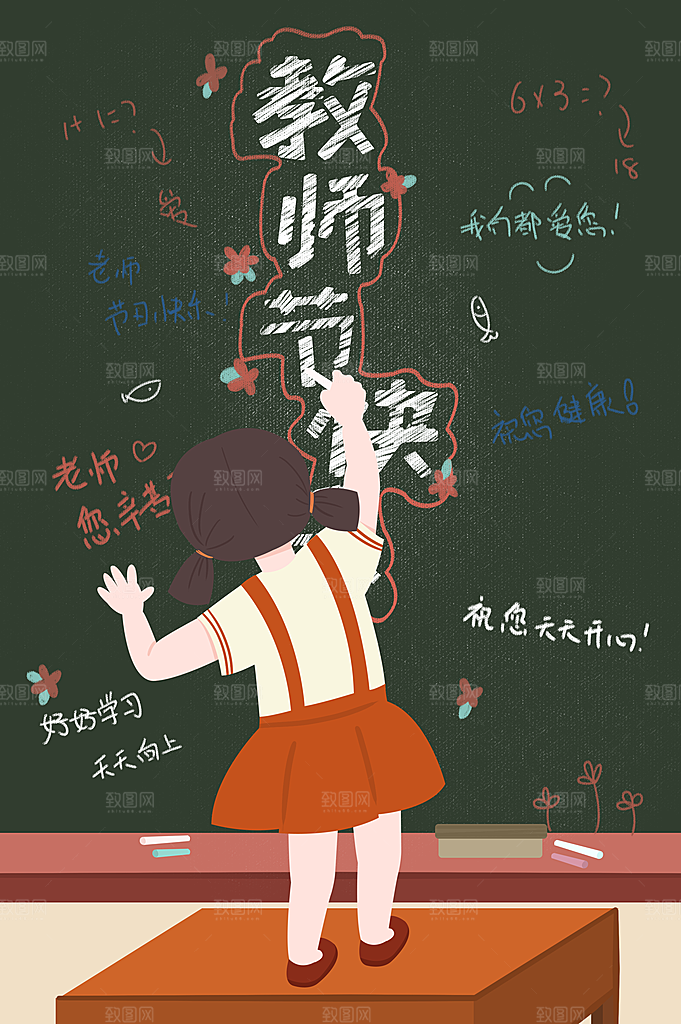 教
师
节
快
1+1=?
爱
6×3=?
18
我们都爱您!
老师
节日快乐!
祝您健康!
老师
您辛苦
祝您天天开心!
好好学习
天天向上